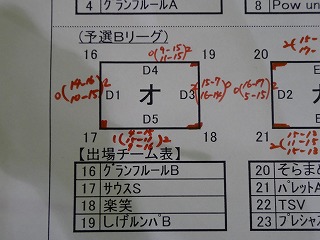 4 グランフルールA
8 Pow un
(予選Bリーグ)
16
19
20
0(9-15 11-15)2
D4
0(14-16 10-15)2
D1
オ
D3
2(15-7 16-14)0
0(16-17 5-15)2
D2
D5
17
18
21
【出場チーム表】
16 グランフルールB
17 サウスS
18 楽笑
19 しげルンパB
20 そらまめ
21 パレットA
22 TSV
23 プレシャス